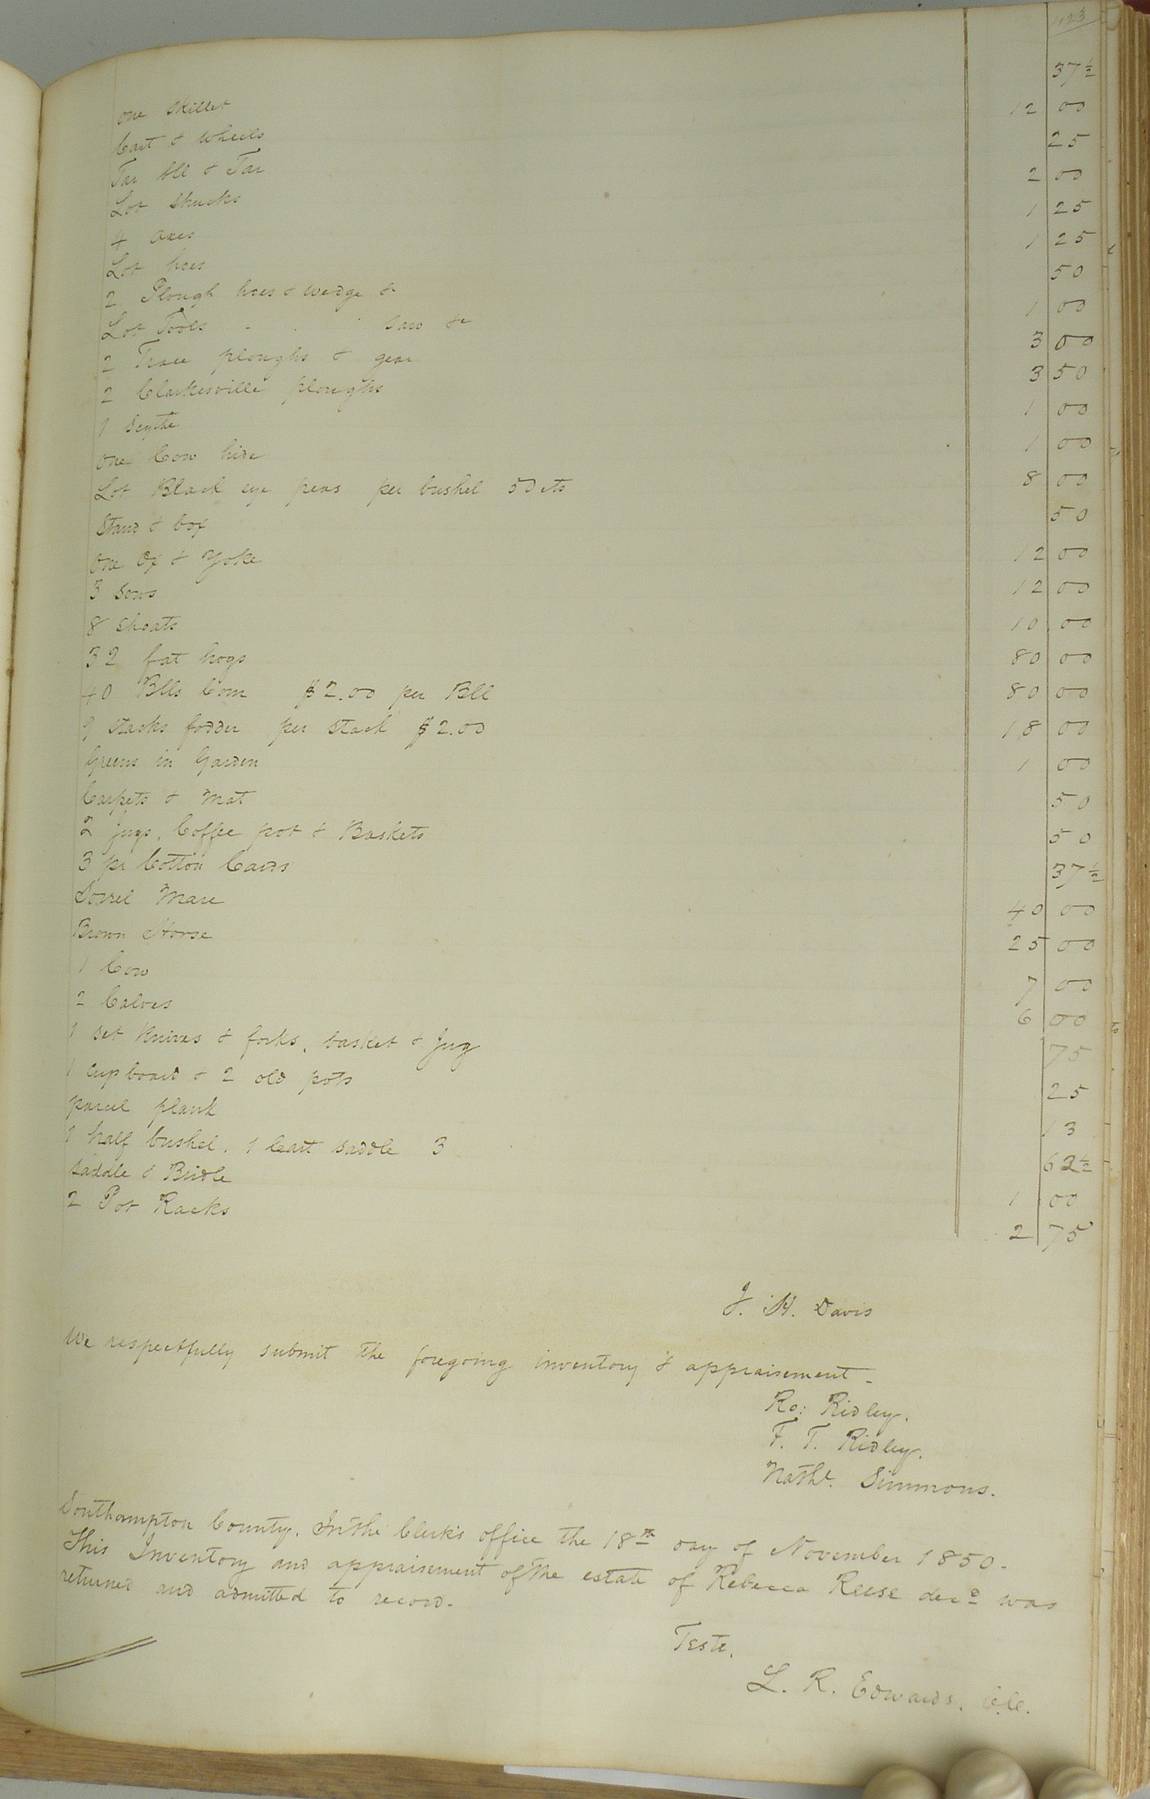 423
one Skillet 37½
Cart & Wheels 12 00
Tar Bll & Tar 25
Lot Shucks 2 00
4 axes 1 25
Lot hoes 1 25
2 Plough hoes & wedge & 50
Lot Tools saw &c 1 00
2 Trace ploughs & gear 3 00
2 Clarkesville ploughs 3 50
1 Scythe 1 00
One Cow hide 1 00
Lot Black eye peas per bushel 50 cts 8 00
Stand & box 50
One Ox & Yoke 12 00
3 Sows 12 00
8 Shoats 10 00
32 fat hogs 80 00
40 Blls Corn $2.00 per Bll 80 00
9 Stacks fodder per Stack $2.00 18 00
Greens in Garden 1 00
Carpets & Mat 50
2 jugs, Coffee pot & Baskets 50
3 pr Cotton Cards 37½
Sorrel Mare 40 00
Brown Horse 25 00
1 Cow 7 00
2 Calves 6 00
1 Set Knives & forks, basket & Jug 75
1 Cupboard & 2 old pots 25
parcel plank 13
1 half bushel, 1 Cart saddle 3 62½
Saddle & Bridle 1 00
2 Pot Racks 2 75
J. H. Davis
We respectfully submit the foregoing inventory & appraisement -
Ro: Ridley.
F. T. Ridley.
Nathl. Simmons.
Southampton County. In the Clerk's office the 18th day of November 1850.
This Inventory and appraisement of the estate of Rebecca Reese decd was
returned and admitted to record.
Teste,
L. R. Edwards, C.C.